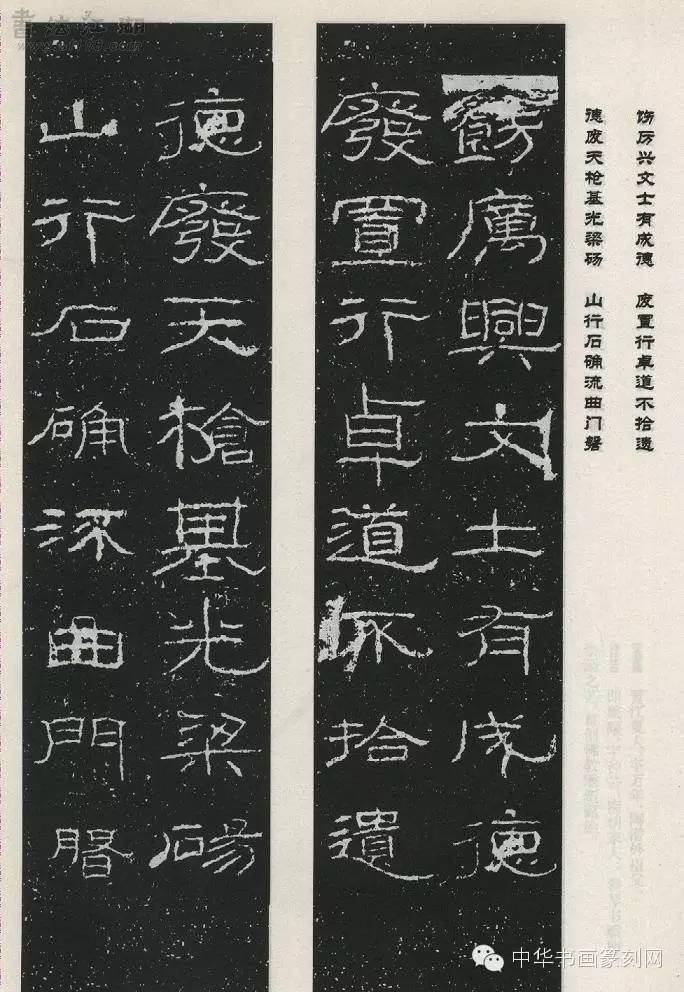 書法江湖
饬厉兴文士有成德 废置行卓道不拾遗
德废天枪基光梁砀 山行石确流曲门磬
飭厲興文士有成德
廢置行卓道不拾遺
德廢天槍基光梁碭
山行石确流曲門
中华书画篆刻网